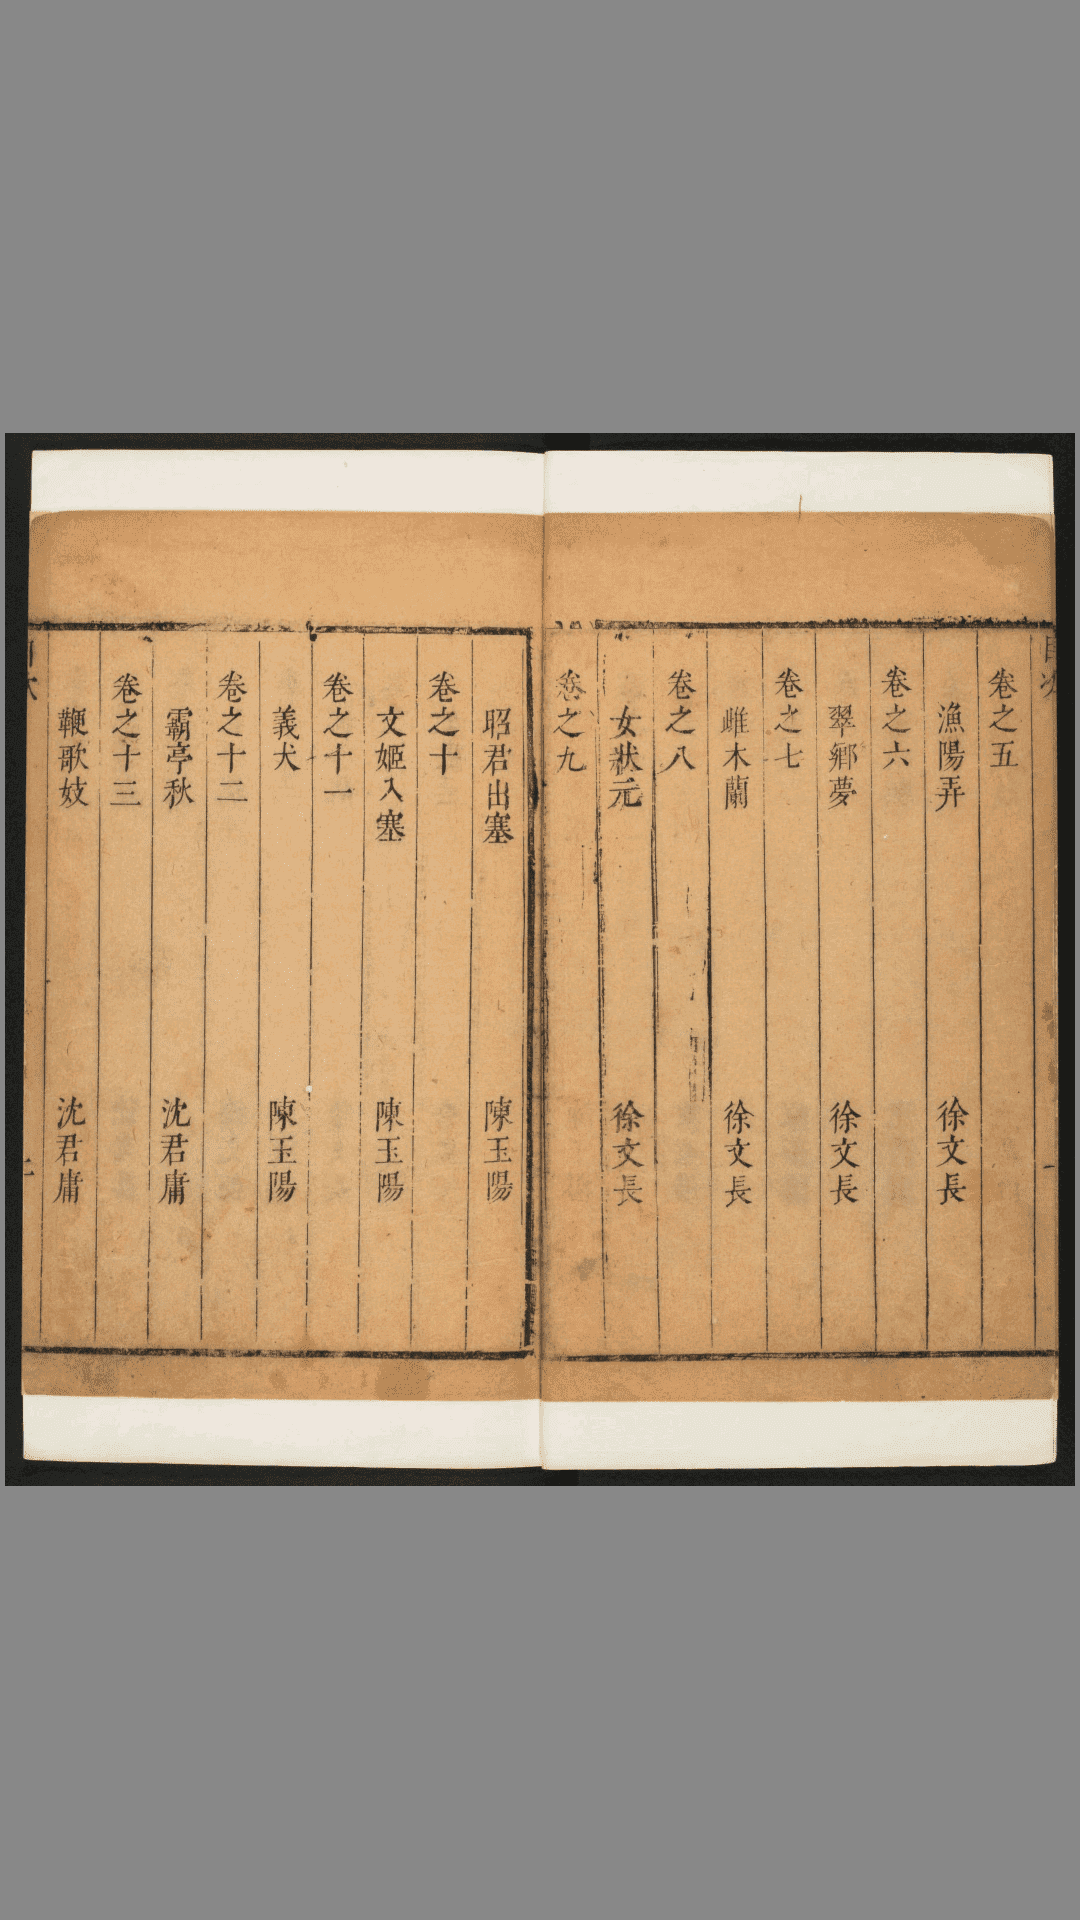 目次
卷之五
漁陽弄 徐文長
卷之六
翠鄉夢 徐文長
卷之七
雌木蘭 徐文長
卷之八
女狀元 徐文長
卷之九
昭君出塞 陳玉陽
卷之十
文姬入塞 陳玉陽
卷之十一
義犬 陳玉陽
卷之十二
霸亭秋 沈君庸
卷之十三
鞭歌妓 沈君庸